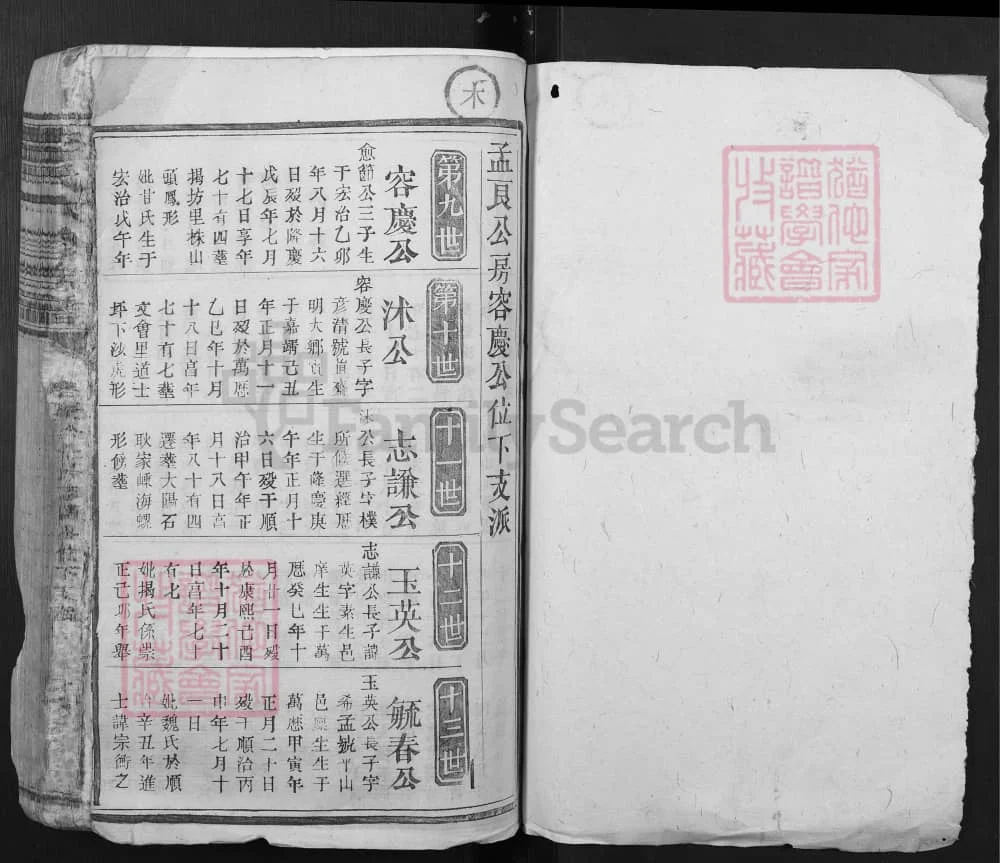 孟艮公房容慶公位下支派
第九世
容慶公
愈節公三子生
于宏治乙卯
年八月十六
日歿於隆慶
戊辰年七月
十七日享年
七十有四塟
揭坊里株山
頭鳳形
妣甘氏生于
宏治戊午年
第十世
沭公
容慶公長子字
彥清號
明大鄉賓生
于嘉靖己丑
年正月十一
日歿於萬曆
乙巳年十月
十八日享年
七十有七塟
文會里道士
坪下泑虎形
十一世
志謙公
沭公長子字樸
所候選經歷
生于隆慶庚
午年正月十
六日歿于順
治甲午年正
月十八日享
年八十有四
遷塟大陽石
耿家㘅海螺
形候塟
十二世
玉英公
志謙公長子諱
英字素生邑
庠生生于萬
曆癸巳年十
月廿一日歿
於康熙己酉
年十月二十
日享年七十
有七
妣揭氏係崇
正己卯年舉
十三世
毓春公
玉英公長子字
希孟號平山
邑廩生生于
萬曆甲寅年
正月二十日
歿于順治丙
申年七月十
一日
妣魏氏於順
治辛丑年進
士諱宗衡之
猶他家
譜學會
收藏
FamilySearch